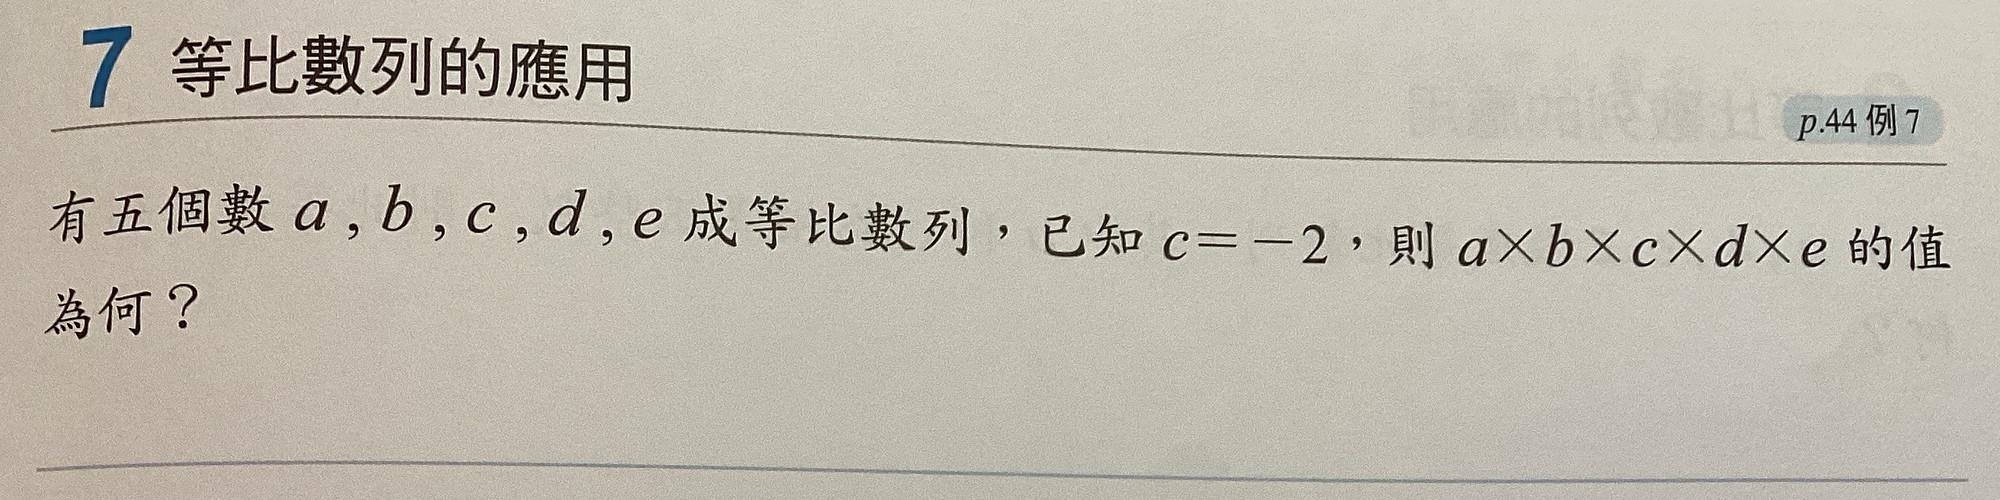 7 等比數列的應用
p.44 例 7
有五個數 a , b , c , d , e 成等比數列，已知 c=−2，則 a×b×c×d×e 的值
為何？